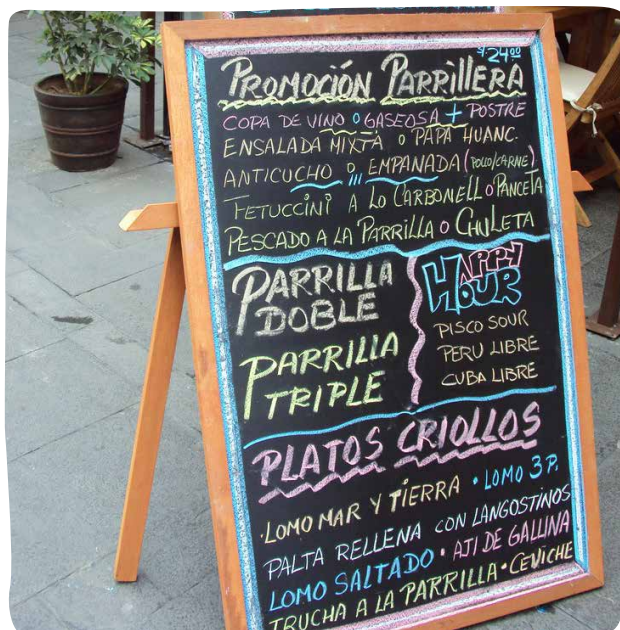 $24.00
PROMOCIÓN PARRILLERA
COPA DE VINO O GASEOSA + POSTRE
ENSALADA MIXTA O PAPA HUANC.
ANTICUCHO O EMPANADA (POLLO/CARNE)
FETUCCINI A LO CARBONELL O PANCETA
PESCADO A LA PARRILLA O CHULETA
PARRILLA
DOBLE
PARRILLA
TRIPLE
HAPPY
HOUR
PISCO SOUR
PERU LIBRE
CUBA LIBRE
PLATOS CRIOLLOS
·LOMO MAR Y TIERRA ·LOMO 3 P.
PALTA RELLENA CON LANGOSTINOS
LOMO SALTADO · AJI DE GALLINA
TRUCHA A LA PARRILLA · CEVICHE